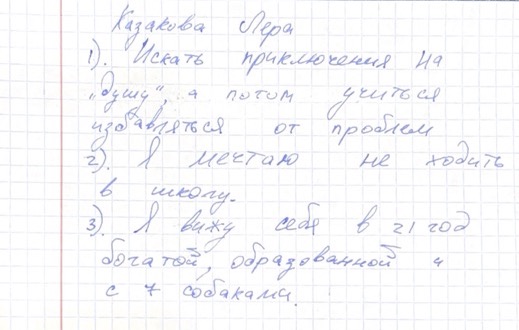 Казакова Лера
1). Искать приключения на
„душу", а потом учиться
избавляться от проблем
2). Я мечтаю не ходить
в школу.
3). Я вижу себя в 21 год
богатой, образованной и
с 7 собаками.